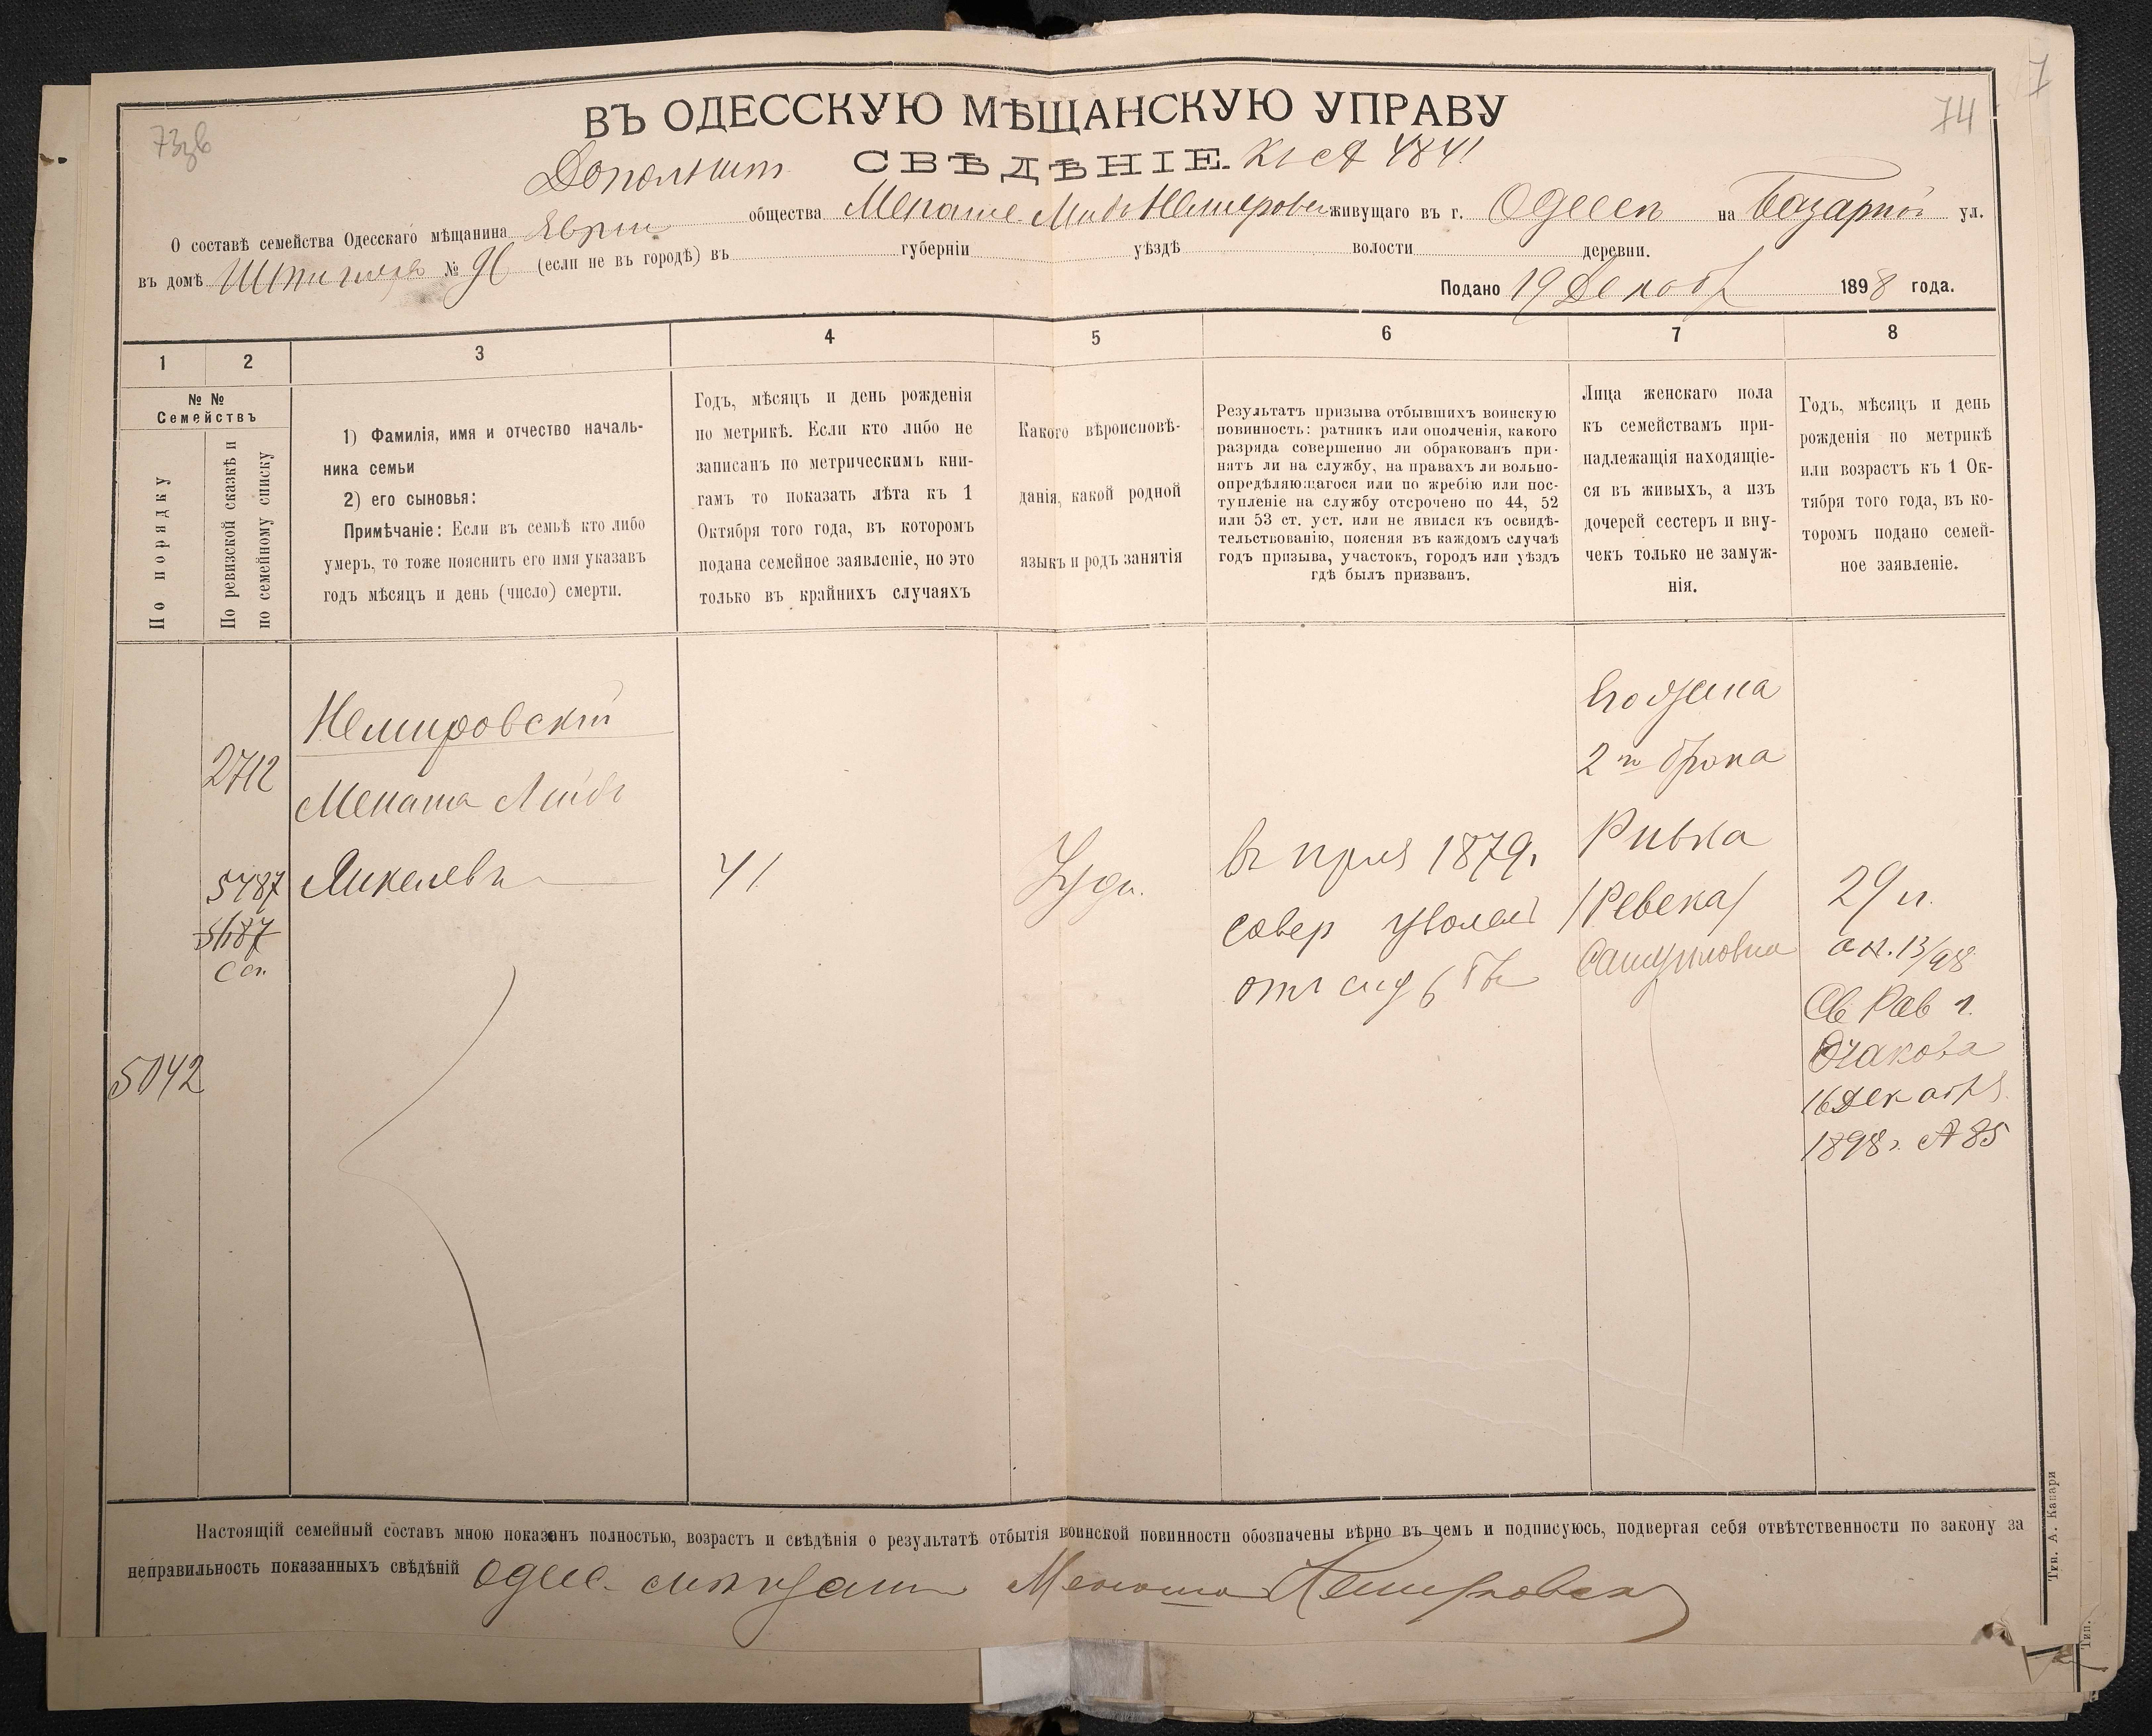 7
74
73зв
ВЪ ОДЕССКУЮ МѢЩАНСКУЮ УПРАВУ
Дополнит. СВѢДѢНІЕ. Къ № 4841
О составѣ семейства Одесскаго мѣщанина Еврей общества Менаше Лейбъ Немировск живущаго въ г. Одессѣ на Базарной ул.
въ домѣ № (если не въ городѣ) въ губерніи уѣздѣ волости деревни.
Подано 19 Декабр 1898 года.
1 2 3 4 5 6 7 8
№ №
Семействъ
По порядку
По ревизской сказкѣ и
по семейному списку
1) Фамилія, имя и отчество началь-
ника семьи
2) его сыновья:
Примѣчаніе: Если въ семьѣ кто либо
умеръ, то тоже пояснить его имя указавъ
годъ мѣсяцъ и день (число) смерти.
Годъ, мѣсяцъ и день рожденія
по метрикѣ. Если кто либо не
записанъ по метрическимъ кни-
гамъ то показать лѣта къ 1
Октября того года, въ которомъ
подана семейное заявленіе, но это
только въ крайнихъ случаяхъ
Какого вѣроисповѣ-
данія, какой родной
языкъ и родъ занятія
Результатъ призыва отбывшихъ воинскую
повинность: ратникъ или ополченія, какого
разряда совершенно ли обракованъ при-
нятъ ли на службу, на правахъ ли вольно-
опредѣляющагося или по жребію или пос-
тупленіе на службу отсрочено по 44, 52
или 53 ст. уст. или не явился къ освидѣ-
тельствованію, поясняя въ каждомъ случаѣ
годъ призыва, участокъ, городъ или уѣздъ
гдѣ былъ призванъ.
Лица женскаго пола
къ семействамъ при-
надлежащія находящіе-
ся въ живыхъ, а изъ
дочерей сестеръ и вну-
чекъ только не замуж-
нія.
Годъ, мѣсяцъ и день
рожденія по метрикѣ
или возрастъ къ 1 Ок-
тября того года, въ ко-
торомъ подано семей-
ное заявленіе.
5042
2712
5487
5487
Немировскій
Менаша Лейбъ
Янкелевъ
41
Іуде.
въ приз 1879г.
совер уволенъ
отъ служ
Его жена
2го брака
Ривка
/Ревека/
Самуиловна
29 л.
ок. 13/98
Св Рав г.
Очакова
16 Декабря
1898г. № 85
Настоящій семейный составъ мною показанъ полностью, возрастъ и свѣдѣнія о результатѣ отбытія воинской повинности обозначены вѣрно въ чемъ и подписуюсь, подвергая себя отвѣтственности по закону за
неправильность показанныхъ свѣдѣній Одес. мѣщанин Менаша Немировск
Тип. А. Кавари
Тип.